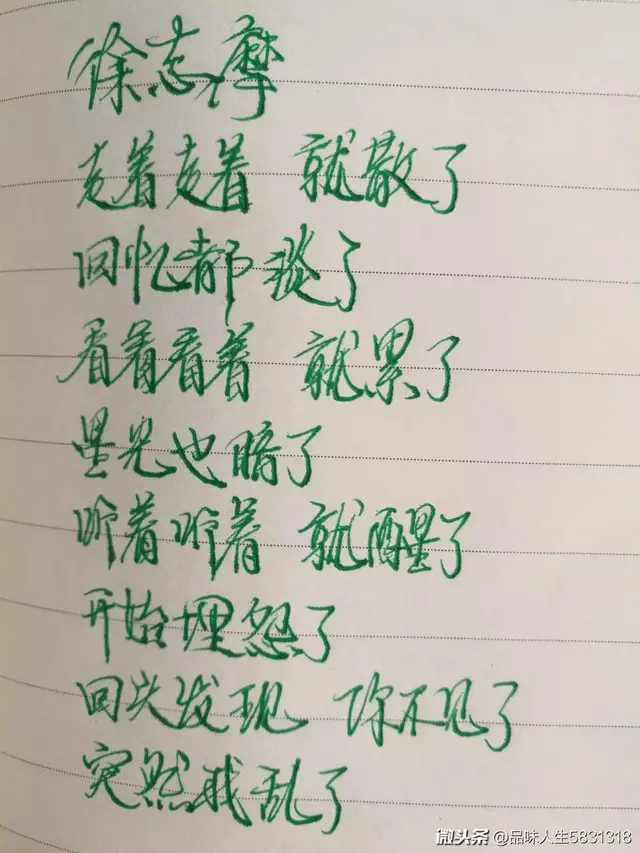 徐志摩
走着走着 就散了
回忆都淡了
看着看着 就累了
星光也暗了
听着听着 就醒了
开始埋怨了
回头发现 你不见了
突然我乱了
微头条 @品味人生5831318